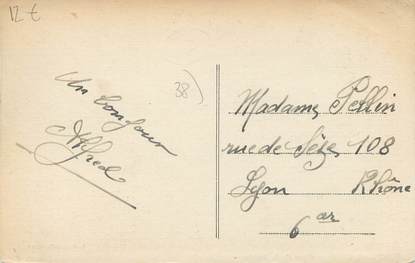 12 €
38
Un bonjour
Alfred
Madame Pellin
rue de Sèze 108
Lyon Rhône
6 ar